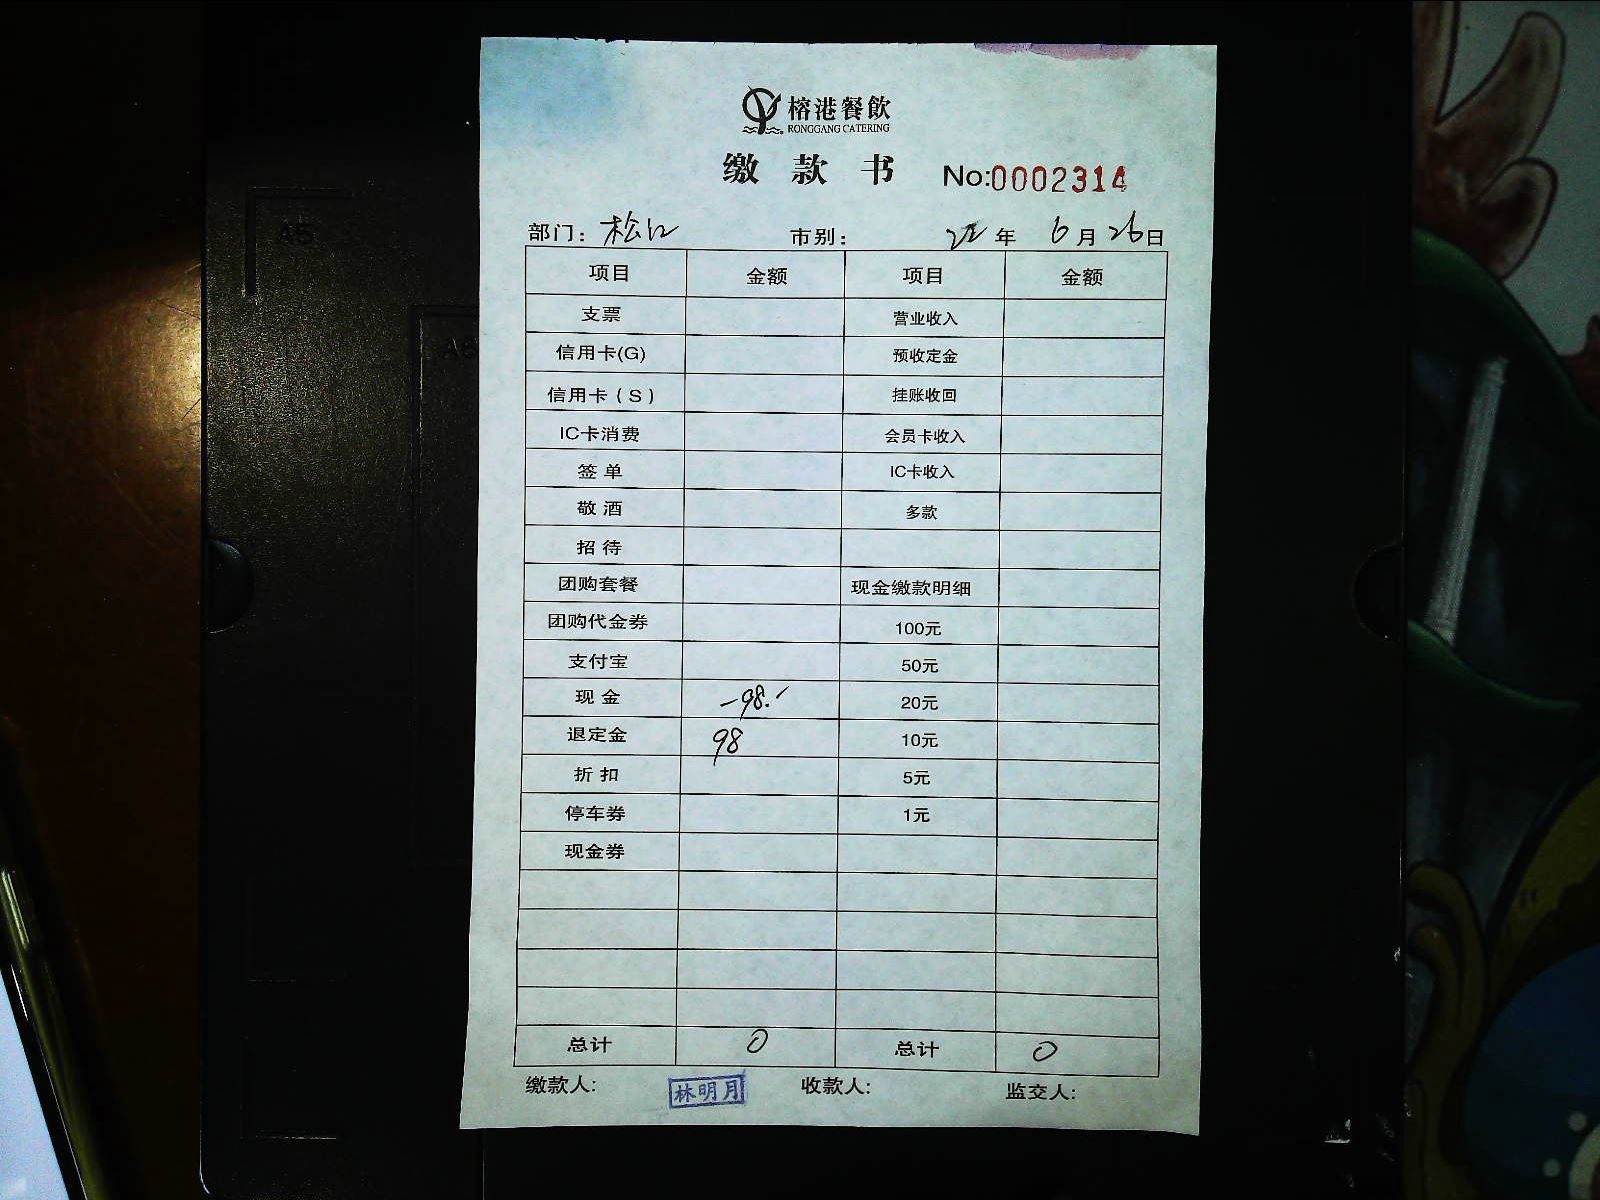 榕港餐飲
RONGGANG CATERING
缴款书 No:0002314
部门: 松江 市别: 22年 6月26日
项目 金额 项目 金额
支票 营业收入
信用卡(G) 预收定金
信用卡(S) 挂账收回
IC卡消费 会员卡收入
签单 IC卡收入
敬酒 多款
招待
团购套餐 现金缴款明细
团购代金券 100元
支付宝 50元
现金 -98. 20元
退定金 98 10元
折扣 5元
停车券 1元
现金券
总计 0 总计 0
缴款人: 林明月 收款人: 监交人:
A5
A6